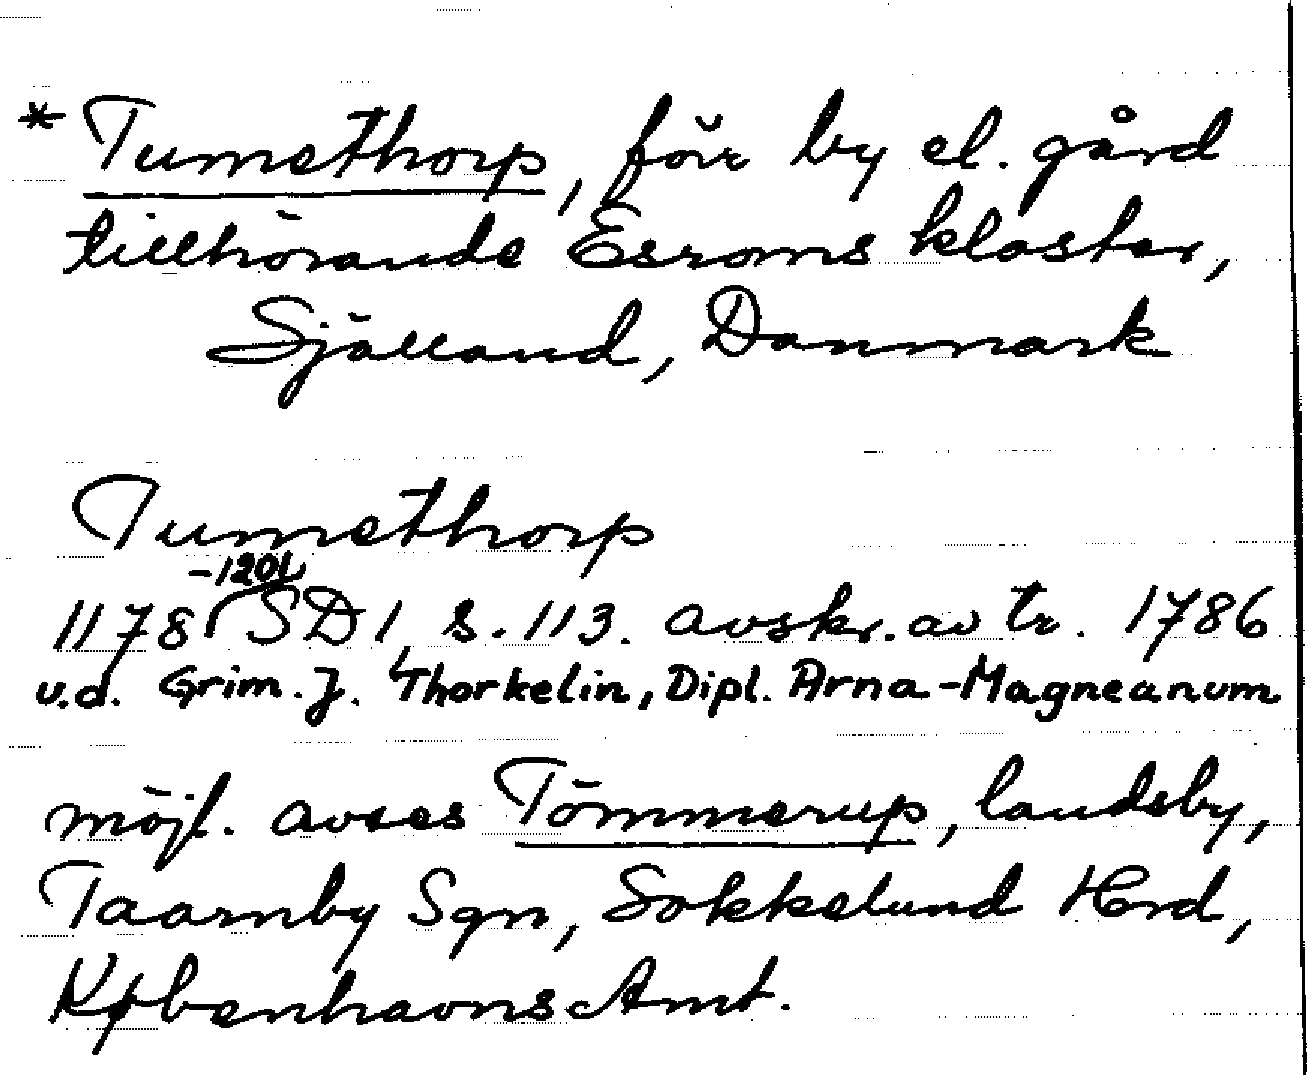 * Tumethorp, för by el. gård
tillhörande Esroms kloster,
Själland, Danmark
Tumethorp
-1201
1178 SD 1 s. 113. avskr. av tr. 1786
u.d. Grim. J. Thorkelin, Dipl. Arna-Magneanum
möjl. avses Tömmerup, landsby,
Taarnby Sgn, Sokkelund Hrd,
Københavns Amt.